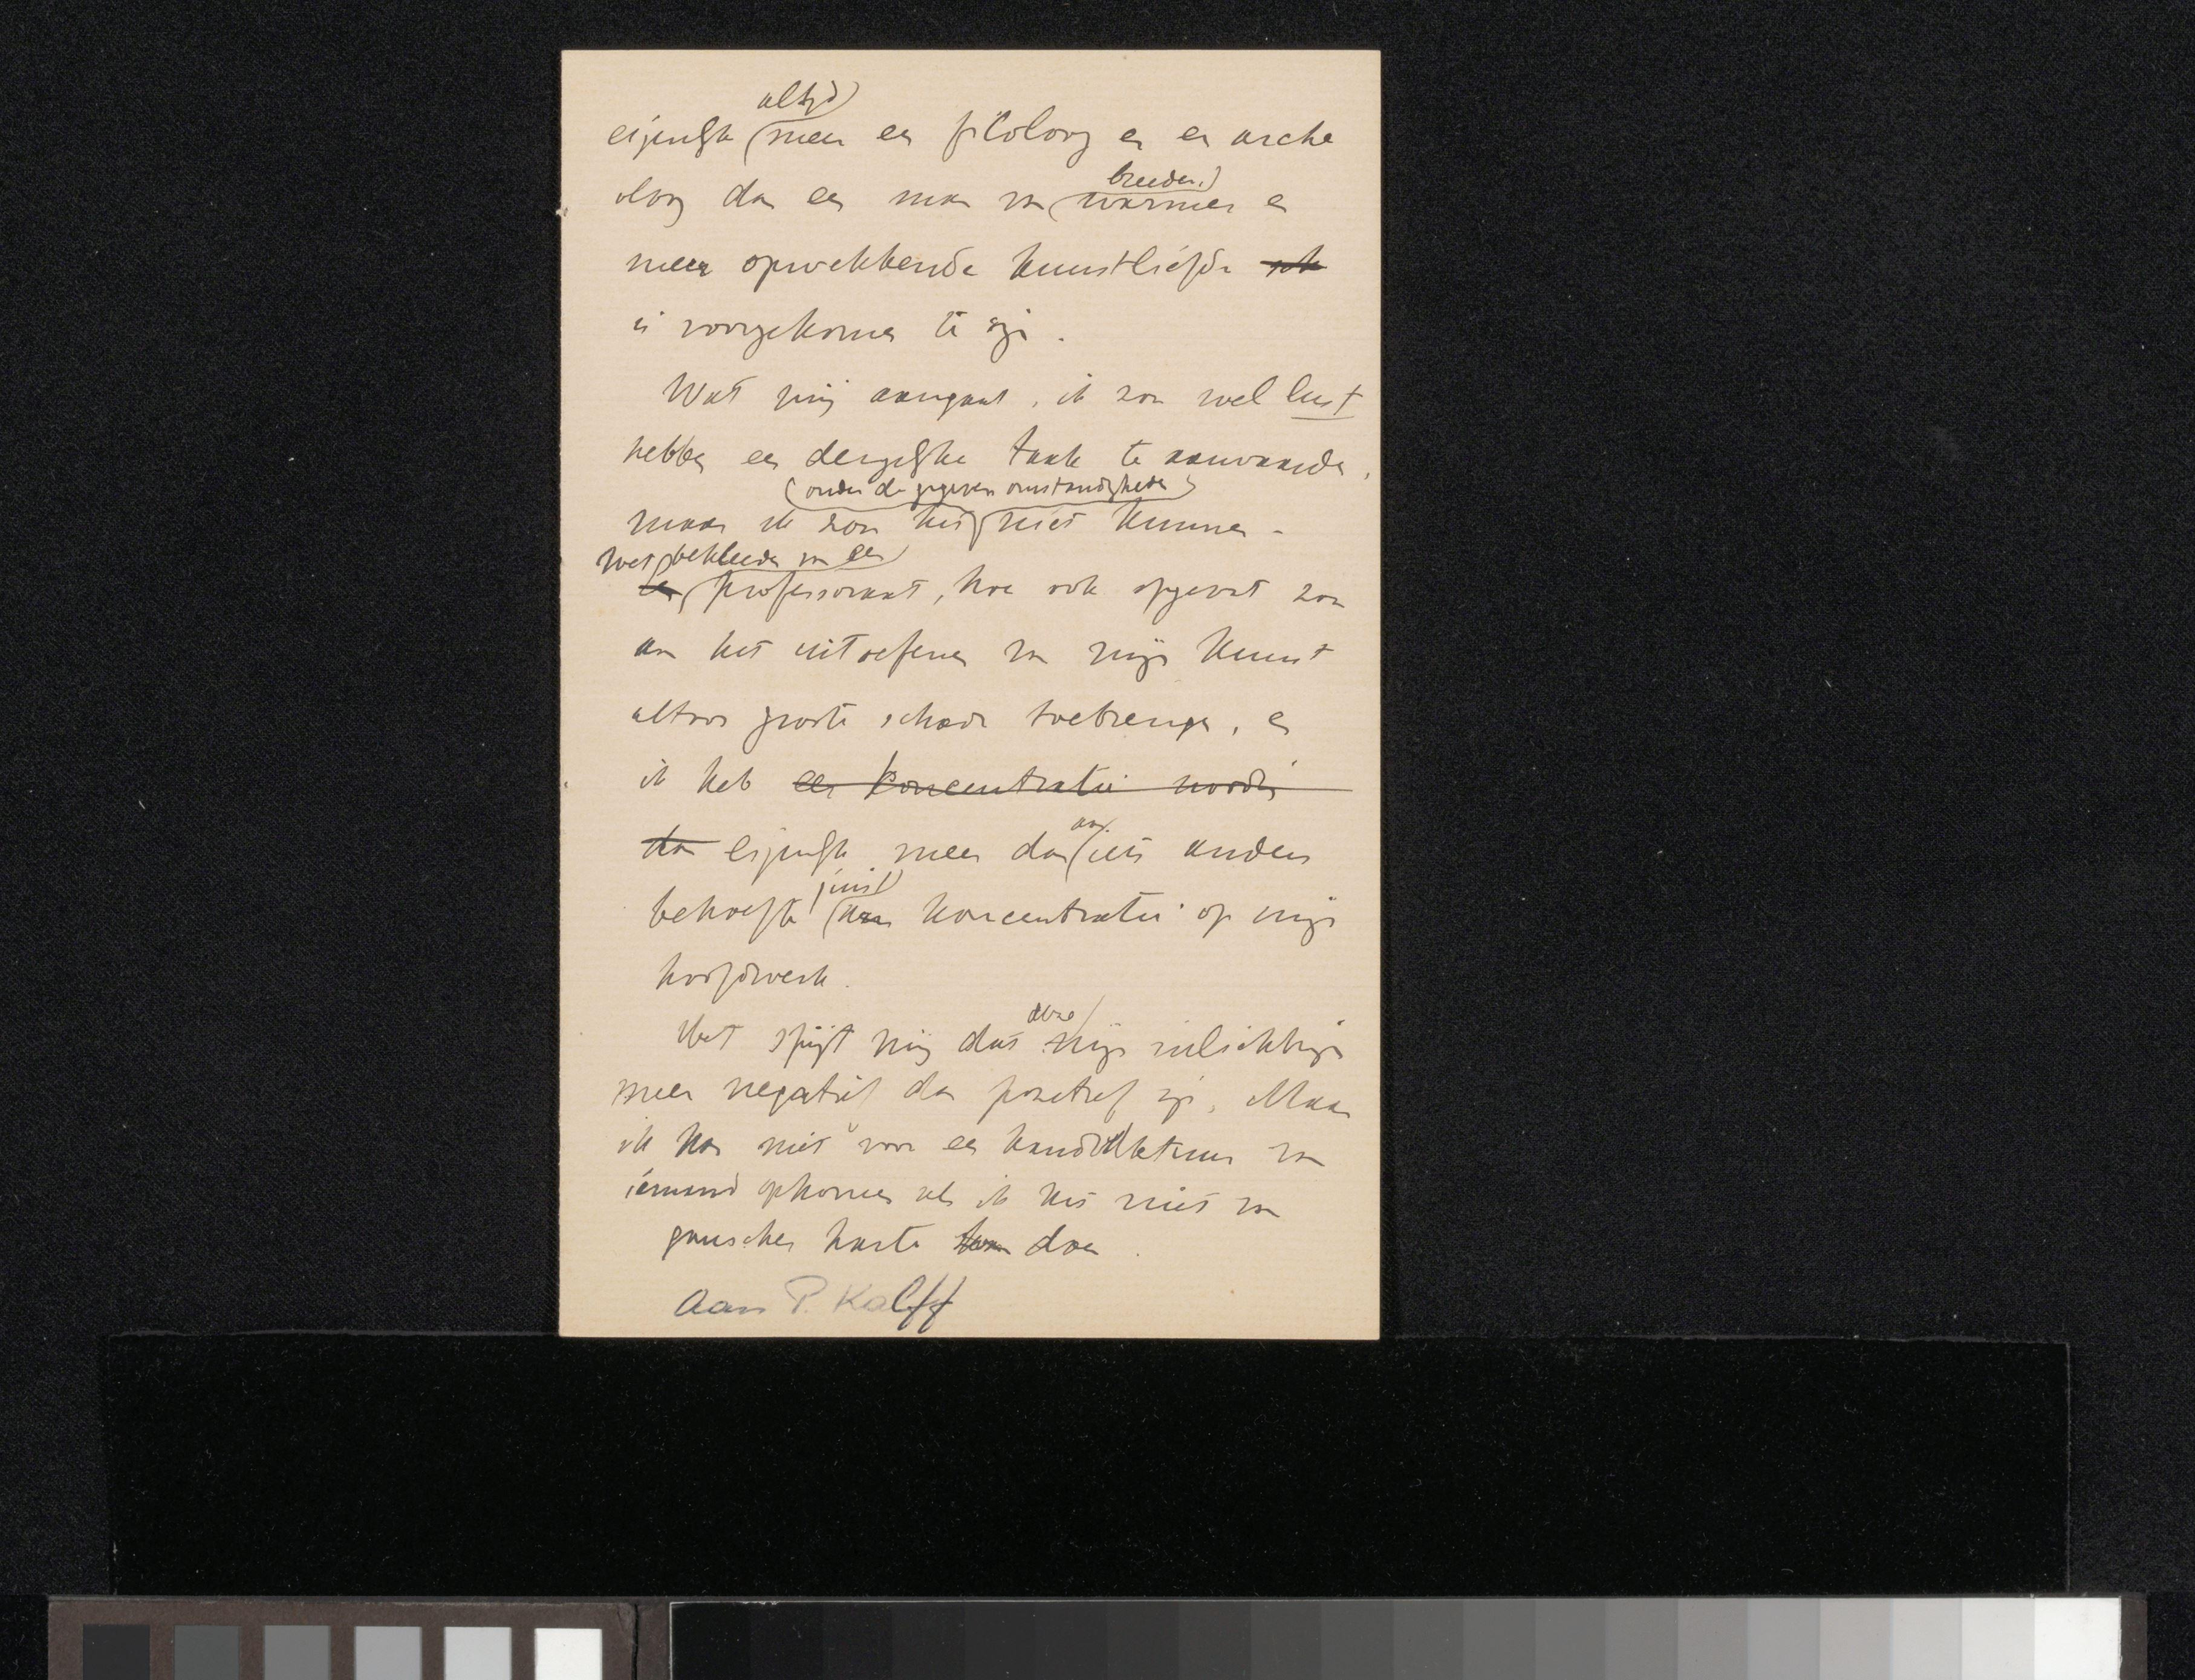 altijd
eigenlijk meer een filoloog en een arche
oloog dan een man van warmer en
breeder
meer opwekkende kunstliefde ook
is voorgekomen te zijn.
Wat mij aangaat, ik zou wel lust
hebben een dergelijke taak te aanvaarden,
(onder de gegeven omstandigheden)
maar ik zou het niet kunnen -
Het bekleeden van een
een professoraat, hoe ook opgevat zou
aan het uitoefenen van mijn kunst
altoos groote schade toebrengen, en
ik heb een koncentratie noodig
dan eigenlijk meer dan iets anders
aan
behoefte aan koncentratie op mijn
juist
hoofdwerk.
deze
Het spijt mij dat mijn inlichtingen
meer negatief dan pozitief zijn. Maar
ik kan niet voor een kandidatuur van
iemand opkomen als ik het niet van
ganscher harte kan doen.
Aan P. Kalff